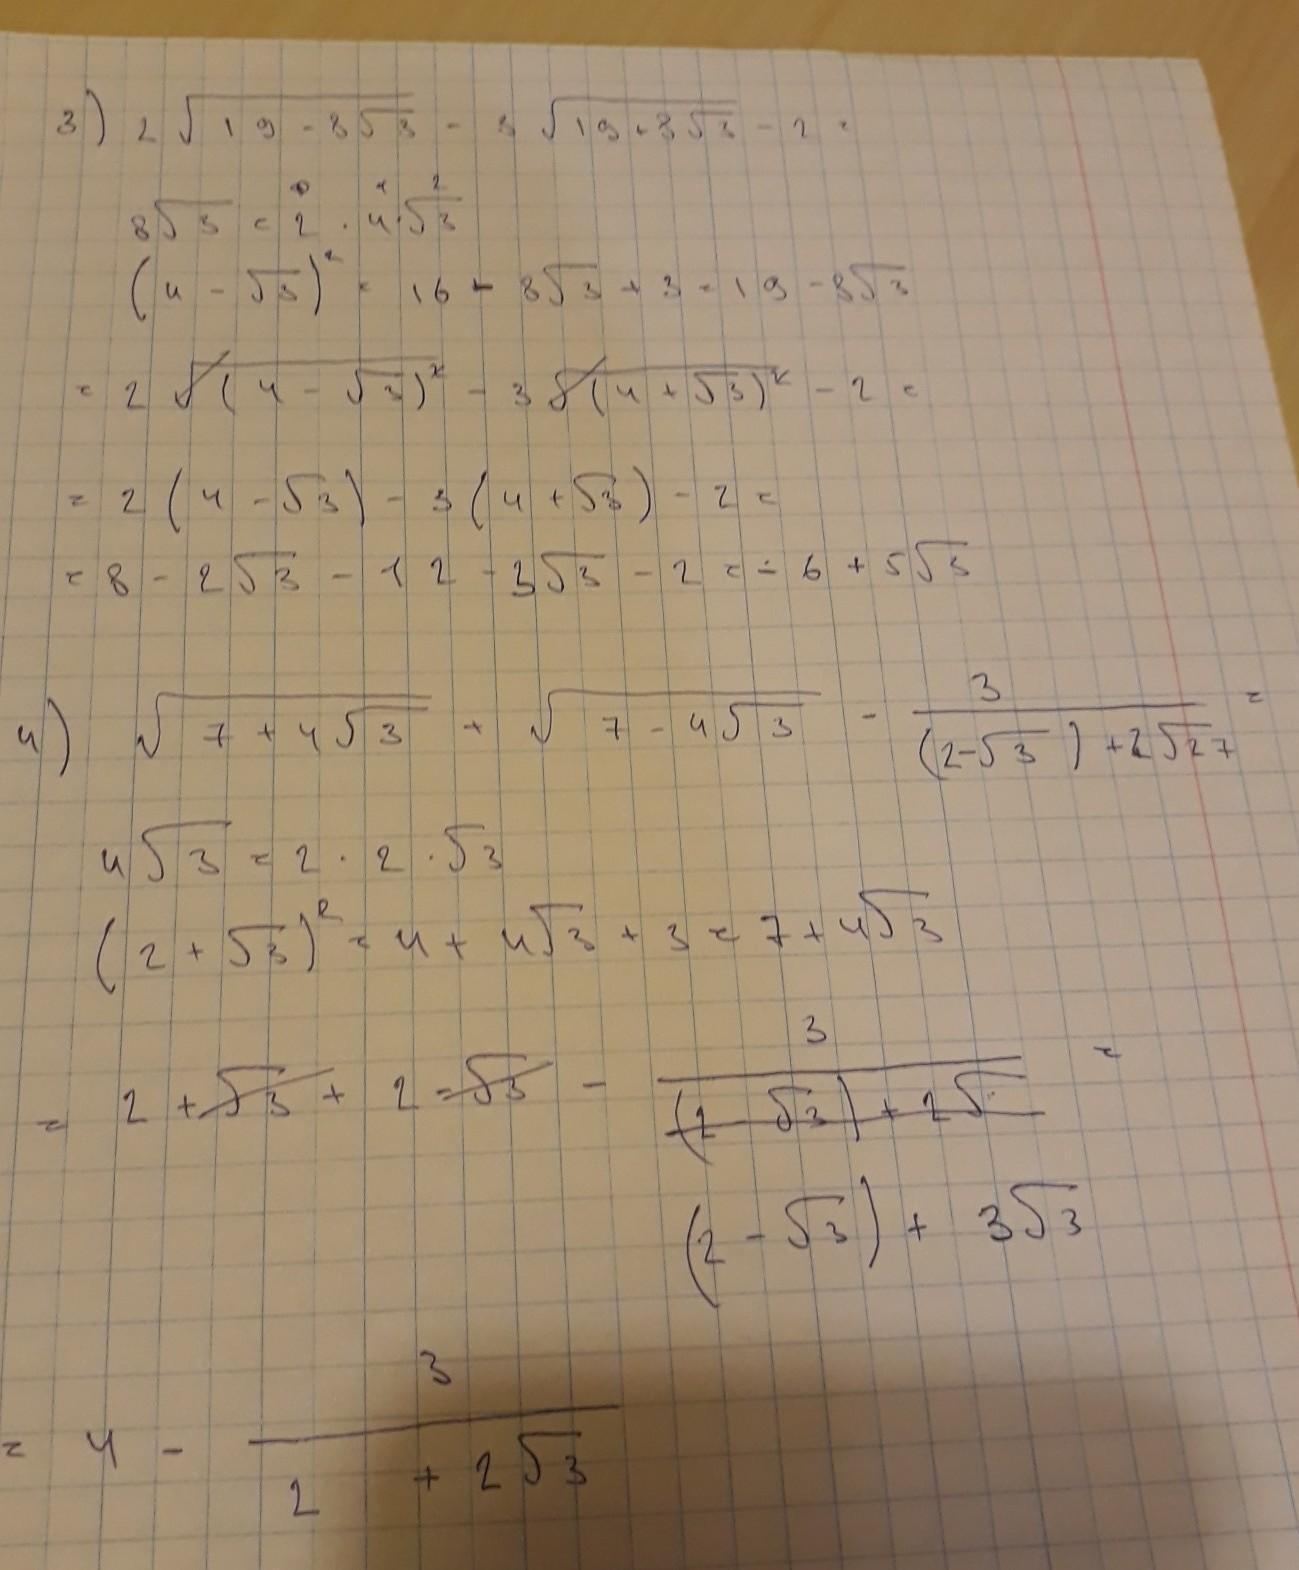 3) 2√(19 - 8√3) - 3√(19 + 8√3) - 2 =
8√3 = 2 · 4 · √3
(4 - √3)² = 16 - 8√3 + 3 = 19 - 8√3
= 2√(4 - √3)² - 3√(4 + √3)² - 2 =
= 2(4 - √3) - 3(4 + √3) - 2 =
= 8 - 2√3 - 12 - 3√3 - 2 = - 6 + 5√3
4) √(7 + 4√3) + √(7 - 4√3) - 3/((2-√3) + 2√27) =
4√3 = 2 · 2 · √3
(2 + √3)² = 4 + 4√3 + 3 = 7 + 4√3
= 2 + √3 + 2 - √3 - 3/((2 - √3) + 2√) =
(2 - √3) + 3√3
= 4 - 3/(2 + 2√3)